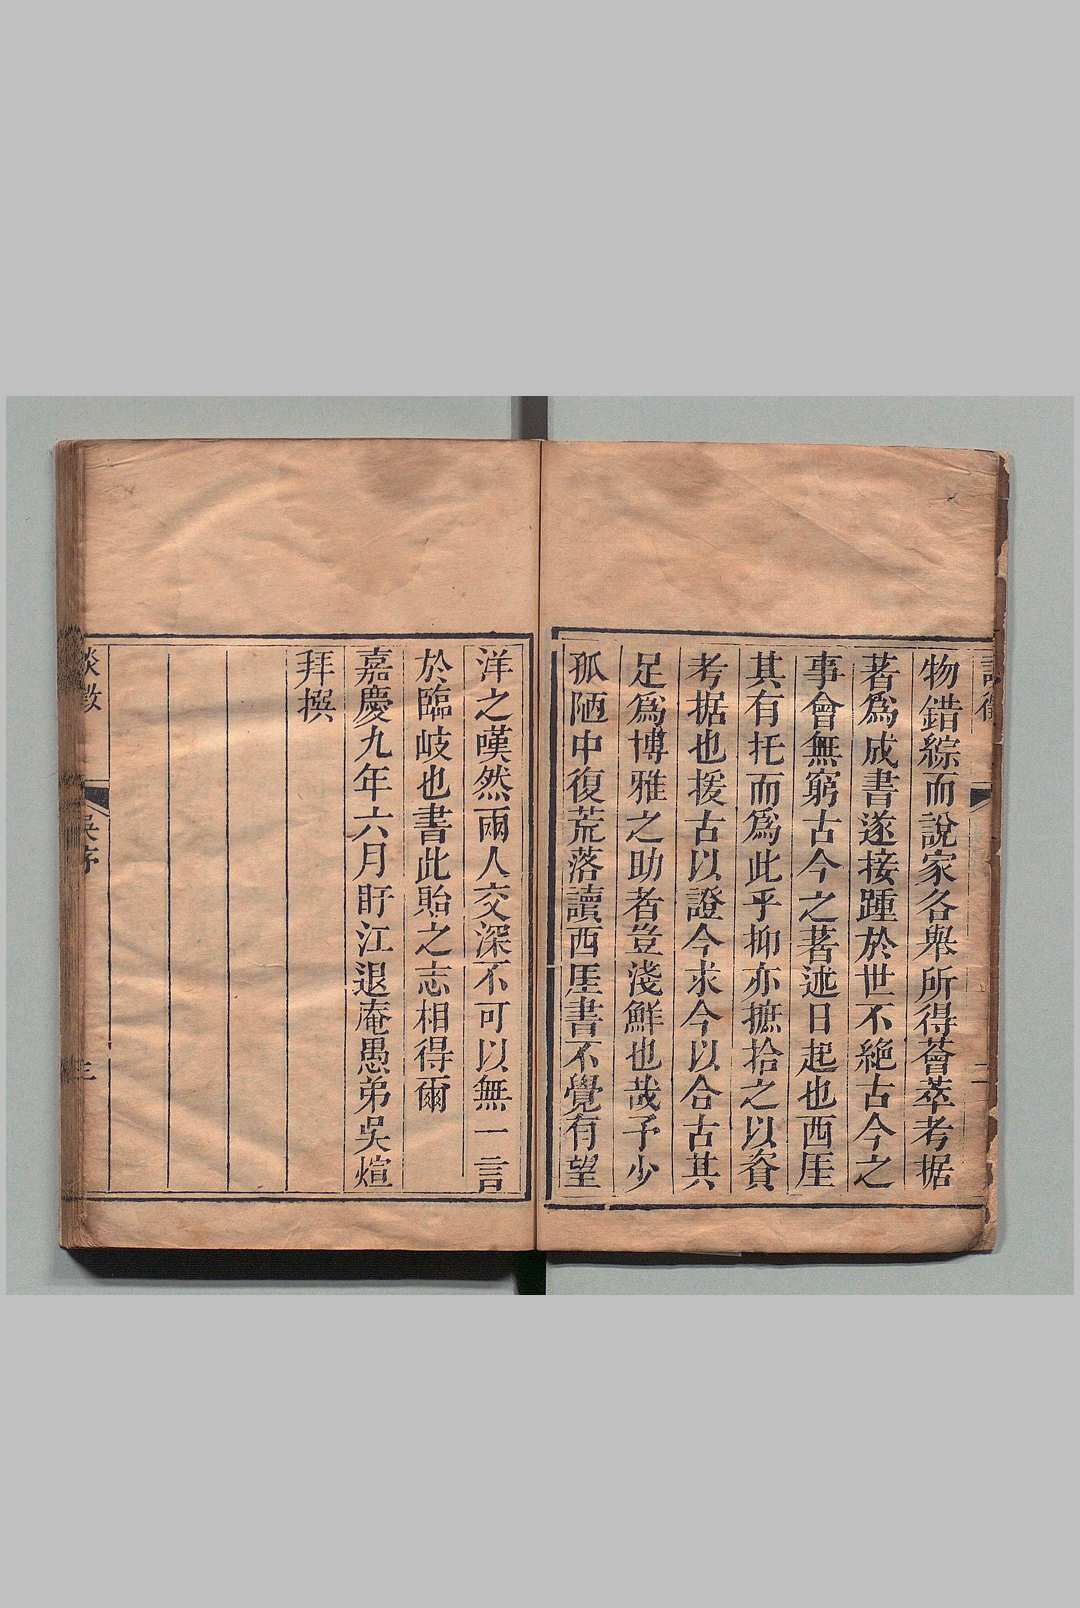 物錯綜而說家各舉所得薈萃考据
著為成書遂接踵於世不絕古今之
事會無窮古今之著述日起也西厓
其有托而為此乎抑亦摭拾之以資
考据也援古以證今求今以合古其
足為博雅之助者豈淺鮮也哉予少
孤陋中復荒落讀西厓書不覺有望
洋之嘆然兩人交深不可以無一言
於臨歧也書此貽之志相得爾
嘉慶九年六月盱江退庵愚弟吳煊
拜撰
談徵
吳序
三